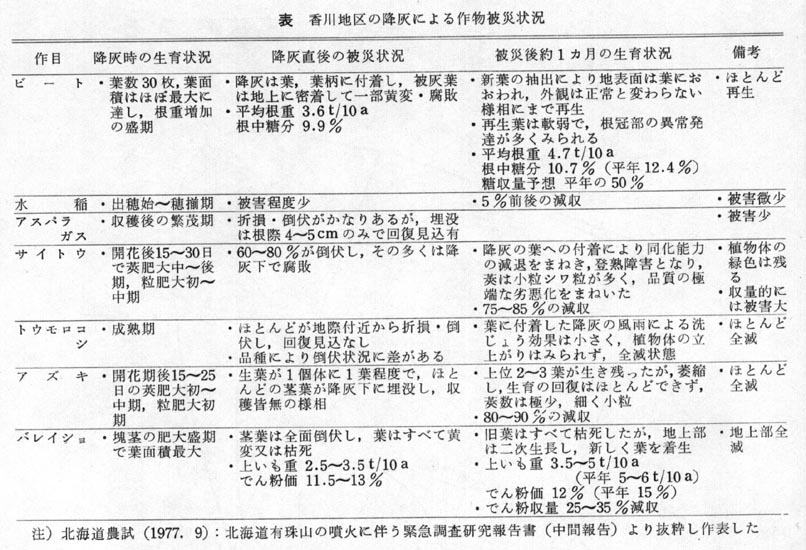 表　香川地区の降灰による作物被災状況
作目　降灰時の生育状況　降灰直後の被災状況　被災後約１カ月の生育状況　備考
ビート
・葉数30枚，葉面
積はほぼ最大に
達し，根重増加
の盛期
・降灰は葉，葉柄に付着し，被灰葉
は地上に密着して一部黄変・腐敗
・平均根重 3.6t/10a
根中糖分 9.9%
・新葉の抽出により地表面は葉にお
おわれ，外観は正常と変わらない
様相にまで再生
・再生葉は軟弱で，根冠部の異常発
達が多くみられる
・平均根重 4.7t/10a
根中糖分 10.7%（平年12.4%）
糖収量予想 平年の50%
・ほとんど
再生
水稲
・出穂始～穂揃期
・被害程度少
・5%前後の減収
・被害微少
アスパラ
ガス
・収穫後の繁茂期
・折損・倒伏がかなりあるが，埋没
は根際4～5cmのみで回復見込有
・被害少
サイトウ
・開花後15～30日
で莢肥大中～後
期，粒肥大初～
中期
・60～80%が倒伏し，その多くは降
灰下で腐敗
・降灰の葉への付着により同化能力
の減退をまねき，登熟障害となり，
莢は小粒シワ粒が多く，品質の極
端な劣悪化をまねいた
・75～85%の減収
・植物体の
緑色は残
る
・収量的に
は被害大
トウモロコ
シ
・成熟期
・ほとんどが地際付近から折損・倒
伏し，回復見込なし
・品種により倒伏状況に差がある
・葉に付着した降灰の風雨による洗
じょう効果は小さく，植物体の立
上がりはみられず，全滅状態
・ほとんど
全滅
アズキ
・開花期後15～25
日の莢肥大初～
中期，粒肥大初
期
・生葉が１個体に１葉程度で，ほと
んどの茎葉が降灰下に埋没し，収
穫皆無の様相
・上位2～3葉が生き残ったが，萎縮
し，生育の回復はほとんどできず，
莢数は極少，細く小粒
・80～90%の減収
・ほとんど
全滅
バレイショ
・塊茎の肥大盛期
で葉面積最大
・茎葉は全面倒伏し，葉はすべて黄
変又は枯死
・上いも重 2.5～3.5t/10a
でん粉価 11.5～13%
・旧葉はすべて枯死したが，地上部
は二次生長し，新しく葉を着生
・上いも重 3.5～5t/10a
（平年 5～6t/10a）
でん粉価 12%（平年15%）
・でん粉収量 25～35%減収
・地上部全
滅
注）北海道農試（1977. 9）：北海道有珠山の噴火に伴う緊急調査研究報告書（中間報告）より抜粋し作表した